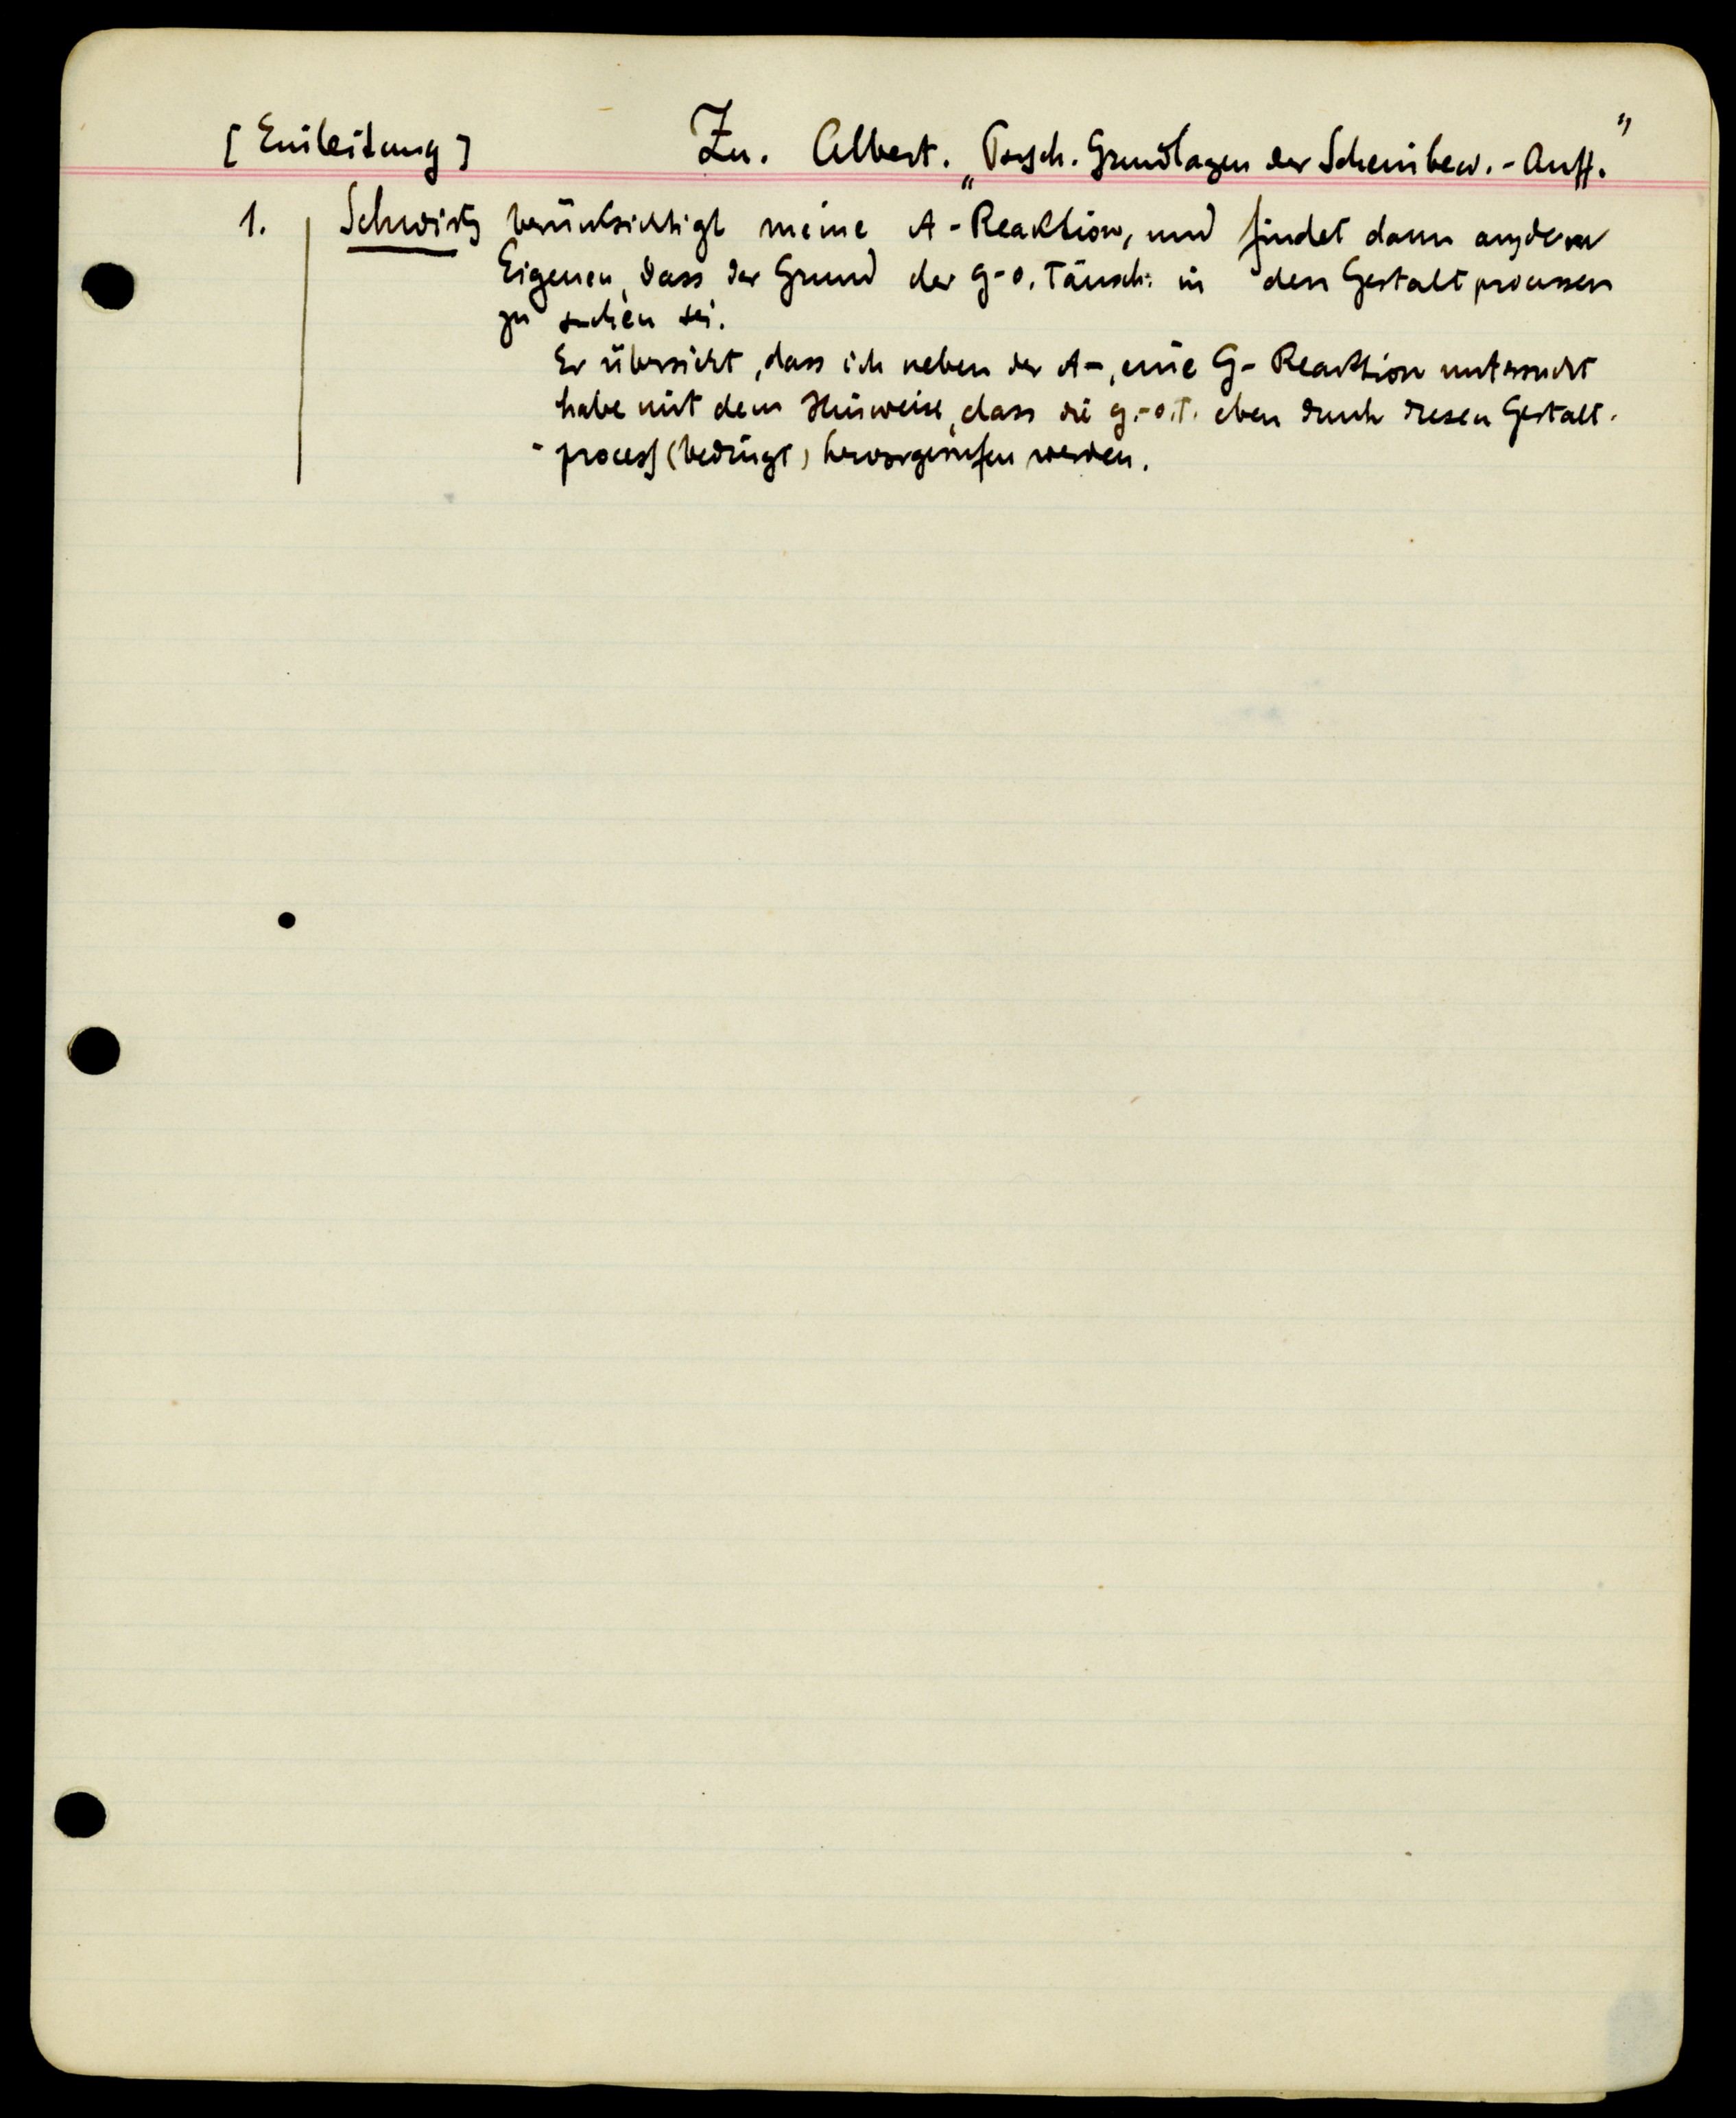 [Einleitung] Zu. Albert. „Psych. Grundlagen der Scheinbew.-Auff."
1. Schwirtz berücksichtigt meine A-Reaktion, und findet dann aus dem
Eigenen, dass der Grund der g-o. Täusch: in den Gestaltprocessen
zu suchen sei.
Er übersieht, dass ich neben der A-, eine G-Reaktion untersucht
habe mit dem Hinweise, dass die g.-o.T. eben durch diesen Gestalt-
-process (bedingt) hervorgerufen werden.